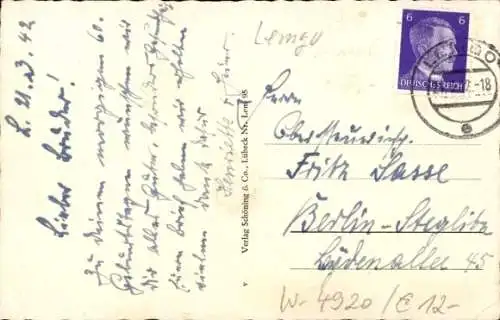 L. 21.2.42
Lieber Bruder!
Zu Deinem morgigen 60.
Geburtstage wünschen wir
Dir alles Gute, besonders Gesundheit
haben wir erhalten
vielen Dank dafür
Henriette
Verlag Schöning & Co., Lübeck Nr. Lem 95
Lemgo
6 6
DEUTSCHES REICH
LEMGO
-18
e
Herrn
Fritz Sasse
Berlin-Steglitz
Bydenallee 45
W-4920/€12-